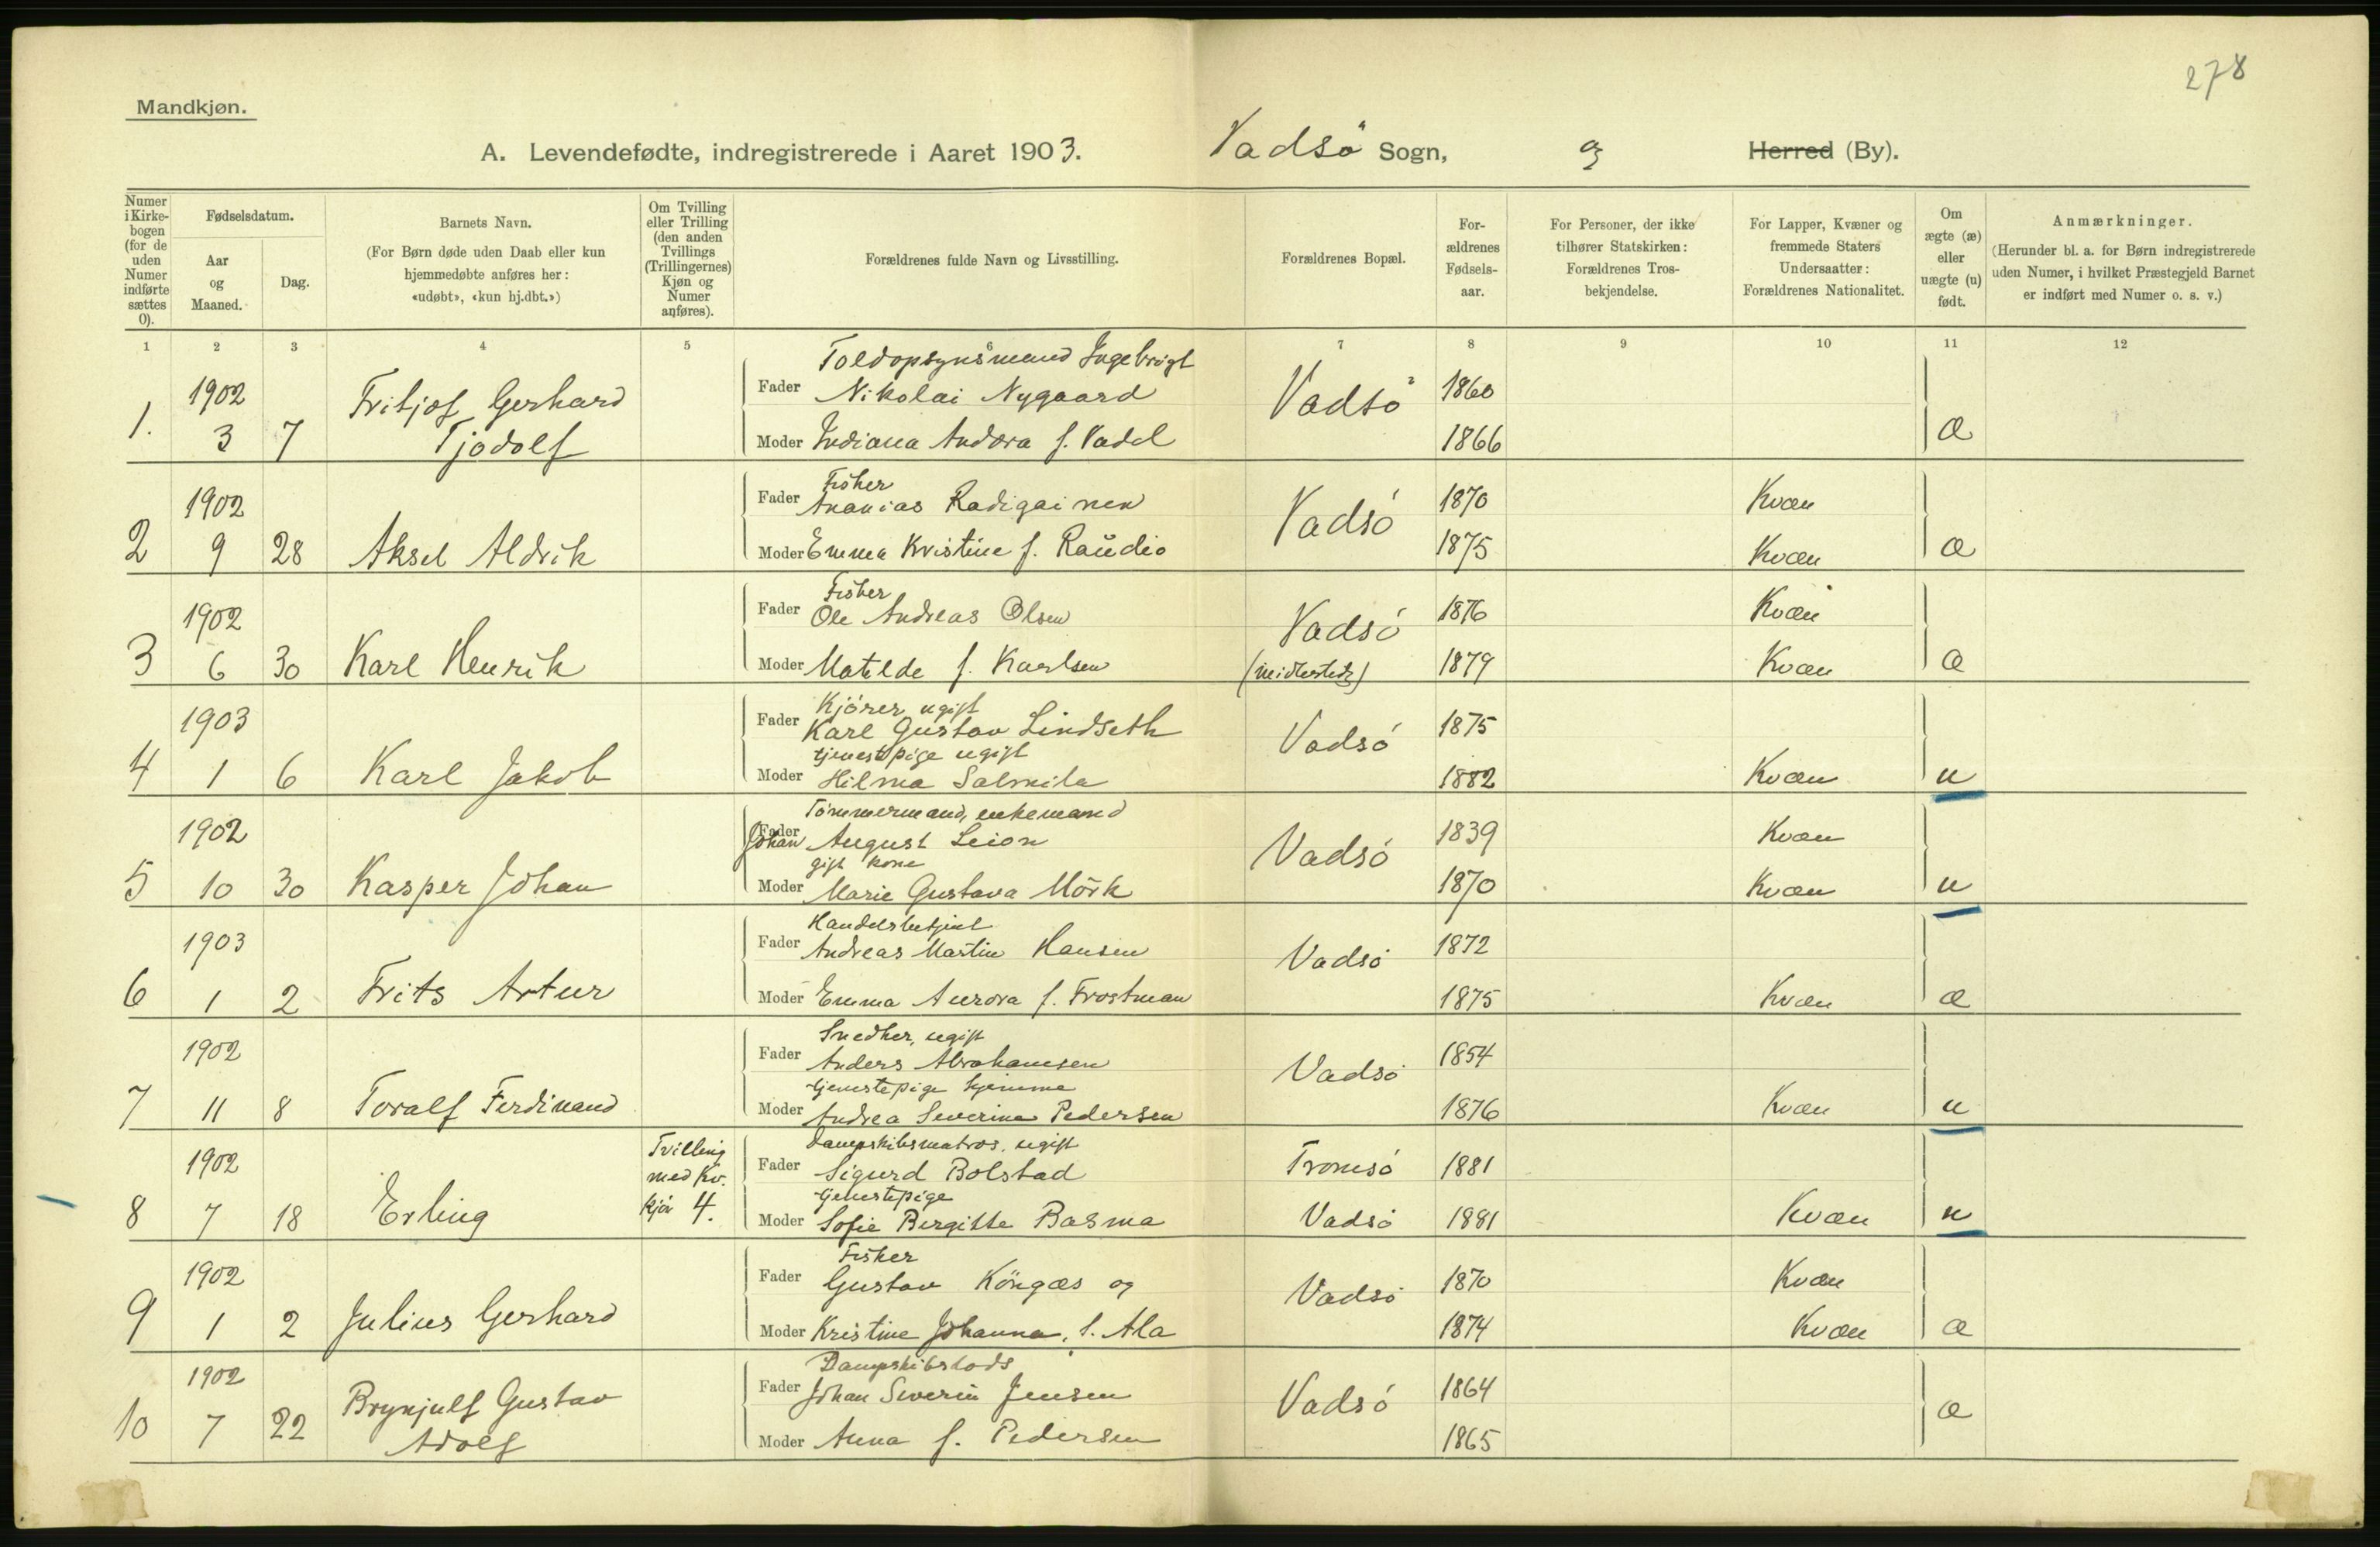 278
Mandkjøn.
A. Levendefødte, indregistrerede i Aaret 1903. Vadsø Sogn, og Herred (By).
Numer i Kirkebogen (for de uden Numer indførte sættes 0).
Fødselsdatum.
Aar og Maaned.
Dag.
Barnets Navn.
(For Børn døde uden Daab eller kun hjemmedøbte anføres her: «udøbt», «kun hj.dbt.»)
Om Tvilling eller Trilling (den anden Tvillings (Trillingernes) Kjøn og Numer anføres).
Forældrenes fulde Navn og Livsstilling.
Forældrenes Bopæl.
Forældrenes Fødselsaar.
For Personer, der ikke tilhører Statskirken: Forældrenes Trosbekjendelse.
For Lapper, Kvæner og fremmede Staters Undersaatter: Forældrenes Nationalitet.
Om ægte (æ) eller uægte (u) født.
Anmærkninger.
(Herunder bl. a. for Børn indregistrerede uden Numer, i hvilket Præstegjeld Barnet er indført med Numer o. s. v.)
1 2 3 4 5 6 7 8 9 10 11 12
Toldopsynsmand Ingebrigt
1902 Fritjof Gerhard Fader Nikolai Nygaard Vadsø 1860
1. 3 7 Tjodolf Moder Indiana Andora f. Vadel 1866 æ
Fisker
1902 Fader Ananias Radigainen Vadsø 1870 Kvæn
2 9 28 Aksel Aldrik Moder Emma Kristine f. Raudio 1875 Kvæn æ
Fisker
1902 Fader Ole Andreas Olsen Vadsø 1876 Kvæn
3 6 30 Karl Henrik Moder Matilde f. Karlsen 1879 Kvæn æ
Kjörer, ugift
1903 Fader Karl Gustav Lindseth Vadsø 1875
tjenestepige ugift
4 1 6 Karl Jakob Moder Hilma Salmila 1882 Kvæn u
Tømmermand, enkemand
1902 Fader Johan August Leion Vadsø 1839 Kvæn
gift kone
5 10 30 Kasper Johan Moder Marie Gustava Mörk 1870 Kvæn u
Handelsbetjent
1903 Fader Andreas Martin Hansen Vadsø 1872
6 1 2 Frits Artur Moder Emma Aurora f. Frostman 1875 Kvæn æ
Snedker, ugift
1902 Fader Anders Abrahamsen Vadsø 1854
tjenestepige hjemme
7 11 8 Toralf Ferdinand Moder Andrea Severine Pedersen 1876 Kvæn u
Dampskibsmatros, ugift
1902 Tvilling med Kv. kjøn 4. Fader Sigurd Bolstad Tromsø 1881
tjenestepige
8 7 18 Erling Moder Sofie Bergitte Basma Vadsø 1881 Kvæn u
Fisker
1902 Fader Gustav Köngæs og Vadsø 1870 Kvæn
9 1 2 Julius Gerhard Moder Kristine Johanna, f. Ala 1874 Kvæn æ
Dampskibslods
1902 Brynjulf Gustav Fader Johan Severin Jensen Vadsø 1864
10 7 22 Adolf Moder Anna f. Pedersen 1865 æ